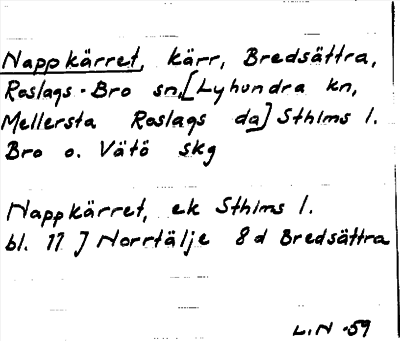 Nappkärret, kärr, Bredsättra,
Roslags-Bro sn, [Lyhundra kn,
Mellersta Roslags da] Sthlms l.
Bro o. Vätö skg
Nappkärret, ek Sthlms l.
bl. 11 J Norrtälje 8 d Bredsättra
L.N -59